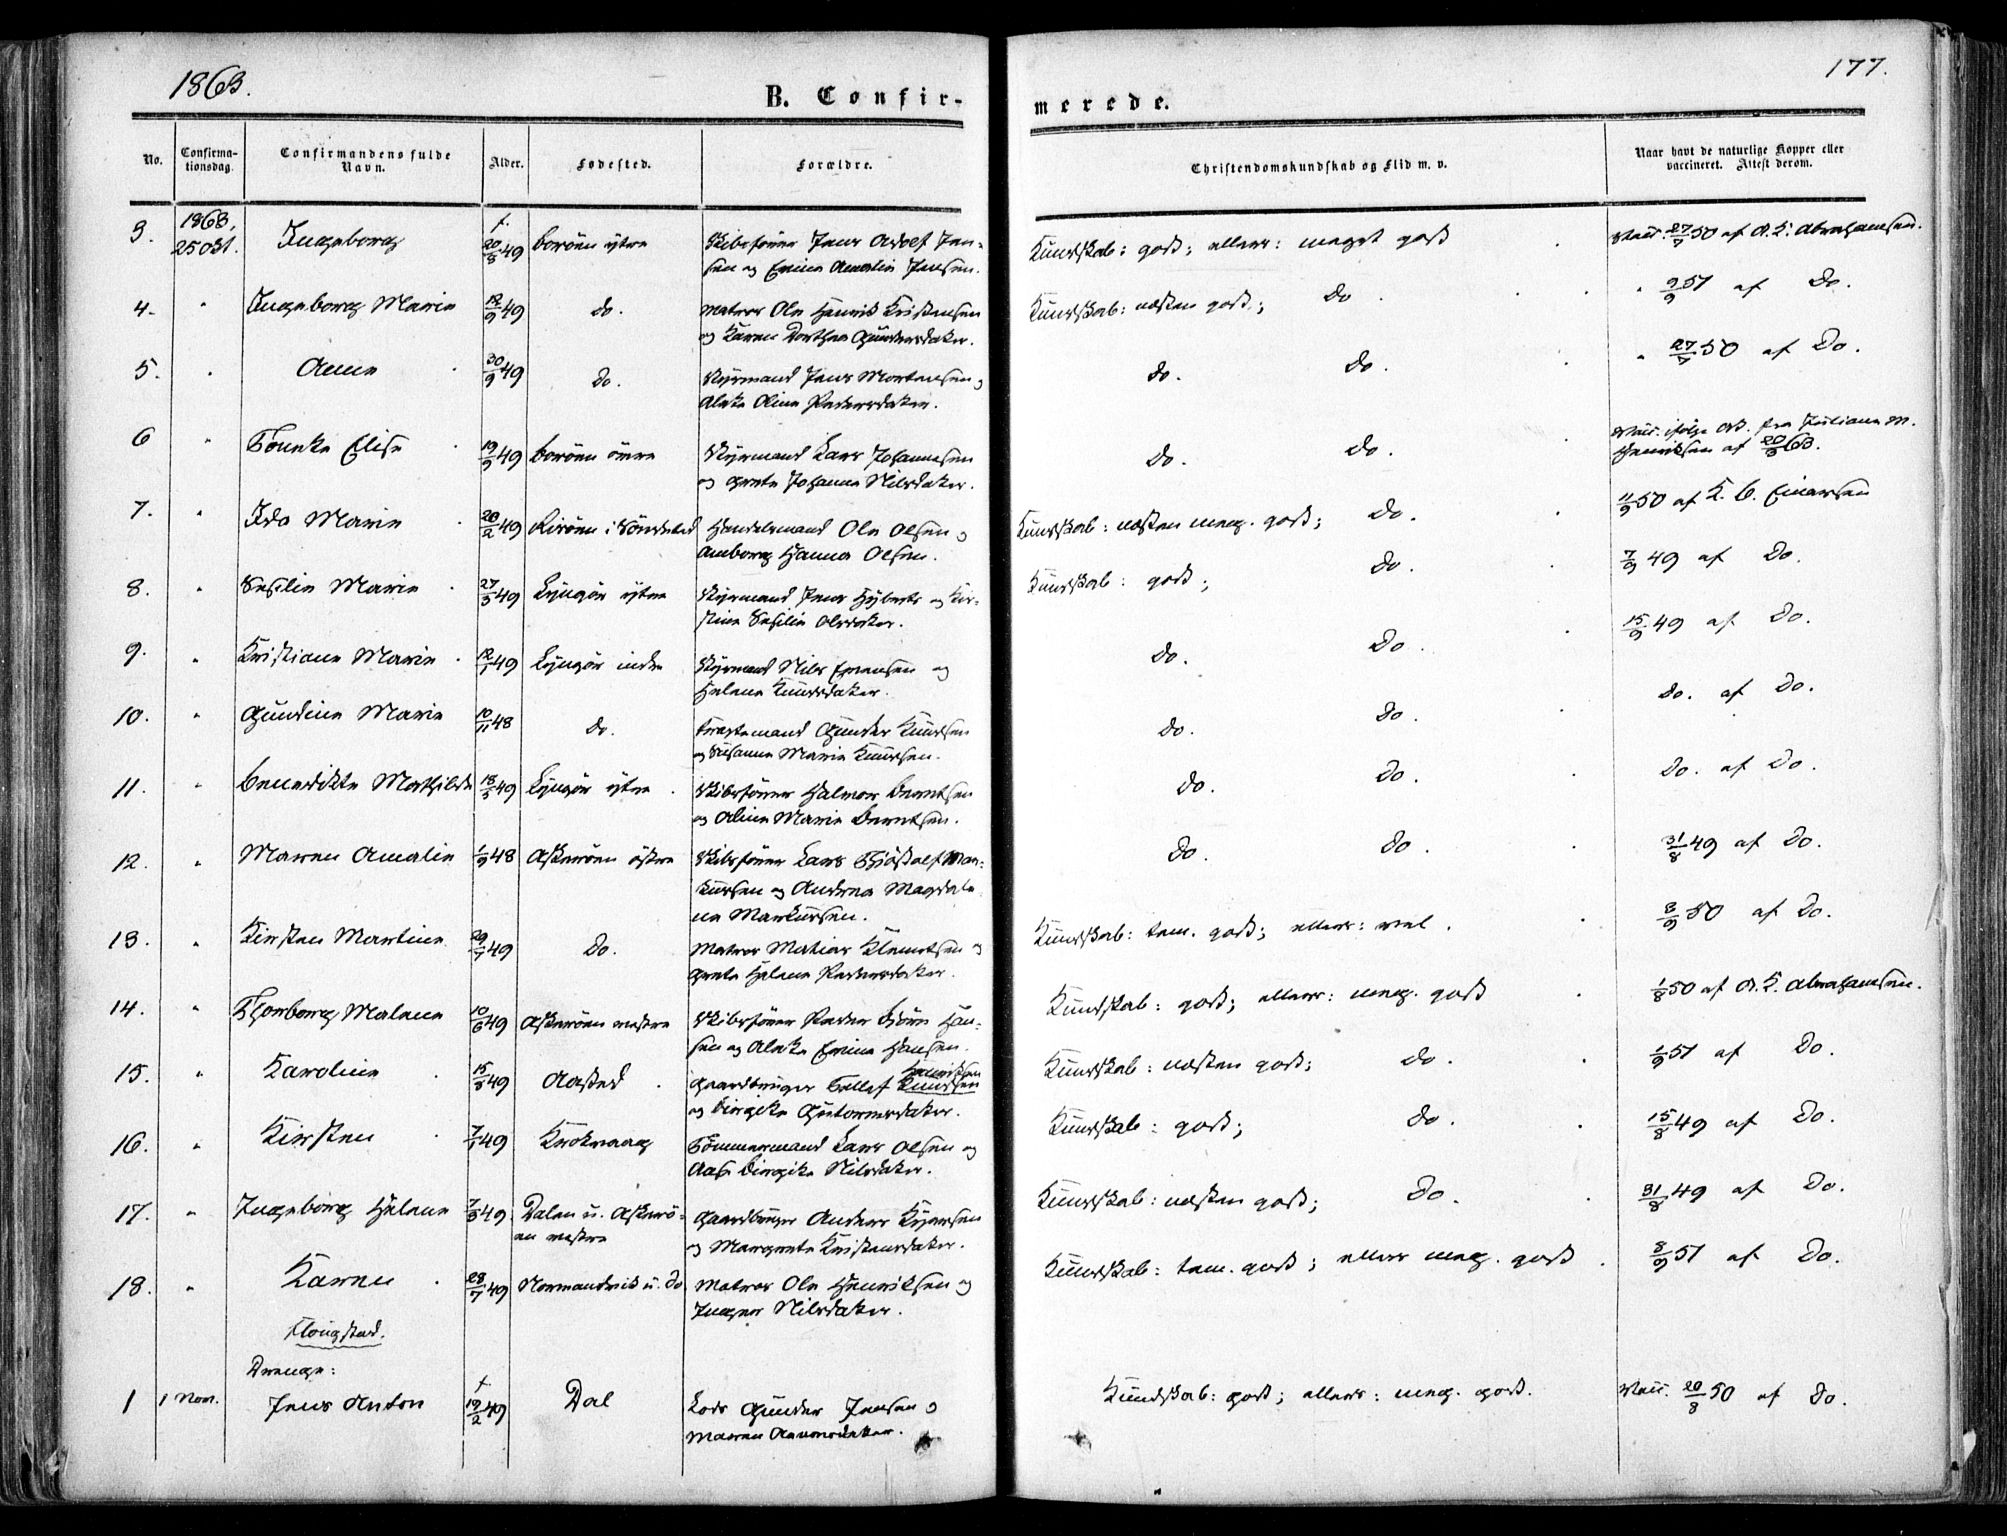 1863.
177.
B. Confir-
merede.
No.
Confirma-
tionsdag.
Confirmandens fulde
Navn.
Alder.
Fødested.
Forældre.
Christendomskundskab og Flid m. v.
Naar havt de naturlige Kopper eller
vaccineret. Attest derom.
3. 1863. 25 Okt. Ingeborg f. 20/8 49 Borøen ytre Skibsfører Jens Adolf Jen-
sen og Emine Amalie Jensen. Kundskab: god; ellers: meget god Vacc. 27/7 50 af A. K. Abrahamsen.
4. " Ingeborg Marie 12/9 49 do. Matros Ole Henrik Kristensen
og Karen Dorthea Gundersdater. Kundskab: næsten god; Do " 9/9 51 af Do.
5. " Anne 30/9 49 do. Styrmand Jens Mortensen og
Aleta Oline Pedersdater. do. do. " 27/7 50 af Do.
6 " Tomke Elise 19/9 49 Borøen Styrmand Lars Johannesen
og Grete Johanne Nilsdater. do. do. Vacc. ifølge Att. fra Juliane M.
Henriksen af 20/9 63.
7. " Ida Marie 20/2 49 i Søndeled Handelsmand Ole Olsen og
Amborg Hanna Olsen. Kundskab: næsten meg. god; Do. 11/9 50 af K. C. Einersen
8. " Sesilie Marie 27/5 49 Lyngør ytre Styrmand Jens Hyberts og Kir-
stine Sesilie Olsdater. Kundskab: god; do. 7/9 49 af Do.
9. " Kristiane Marie 12/7 49 Lyngør indre Styrmand Nils Evensen og
Helene Knudsdater. Do. Do 15/9 49 af Do.
10. " Gundine Marie 10/11 48 do. Gunder Knudsen
og Susanne Marie Knudsen. do. do. do. af Do.
11. " Benedikte Mathilde 18/5 49 Lyngør ytre Skibsfører Halvor Berntsen
og Aline Marie Berntsen. do. do. do. af Do.
12. " Maren Amalie 1/9 48 Askerøen østre Skibsfører Lars Thiostolf Mar-
kussen og Andrea Magdale-
ne Markussen. do. do. 31/8 49 af Do.
13. " Kirsten Martine 29/7 49 Do. Matros Matias Klemetsen og
Grete Helene Pedersdater. Kundskab: tem. god; ellers: vel. 8/9 50 af Do.
14. " Thorborg Malene 10/6 49 Askerøen vestre Skibsfører Peder Bjørn Han-
sen og Aleta Emine Hansen. Kundskab: god; ellers: meg. god 1/8 50 af A. K. Abrahamsen.
15. " Karoline 15/3 49 Aasted Gaardbruger Tellef Knudsen Henriksen
og Birgite Gutormsdater. Kundskab: næsten god; do. 1/9 51 af Do.
16. " Kirsten 7/7 49 Krokvaag Tømmermand Lars Olsen og
Aase Birgite Nilsdater. Kundskab: god; do. 15/8 49 af Do.
17. " Ingeborg Helene 7/3 49 Dalen u. Askerø-
en vestre Gaardbruger Anders Kjersen
og Margrete Kristensdater. Kundskab: næsten god; Do. 31/8 49 af Do.
18. " Karen 28/7 49 Normandvik u. do. Matros Ole Henriksen og
Ingner Nilsdater. Kundskab: tem. god; ellers meg. god. 8/9 51 af Do.
Flougstad.
Drenge:
1 1 Nov. Jens Anton f. 19/2 49 Dal Lods Gunder Jensen og
Maren Aamonsdater. Kundskab: god; ellers: meg. god. Vacc. 20/8 50 af Do.